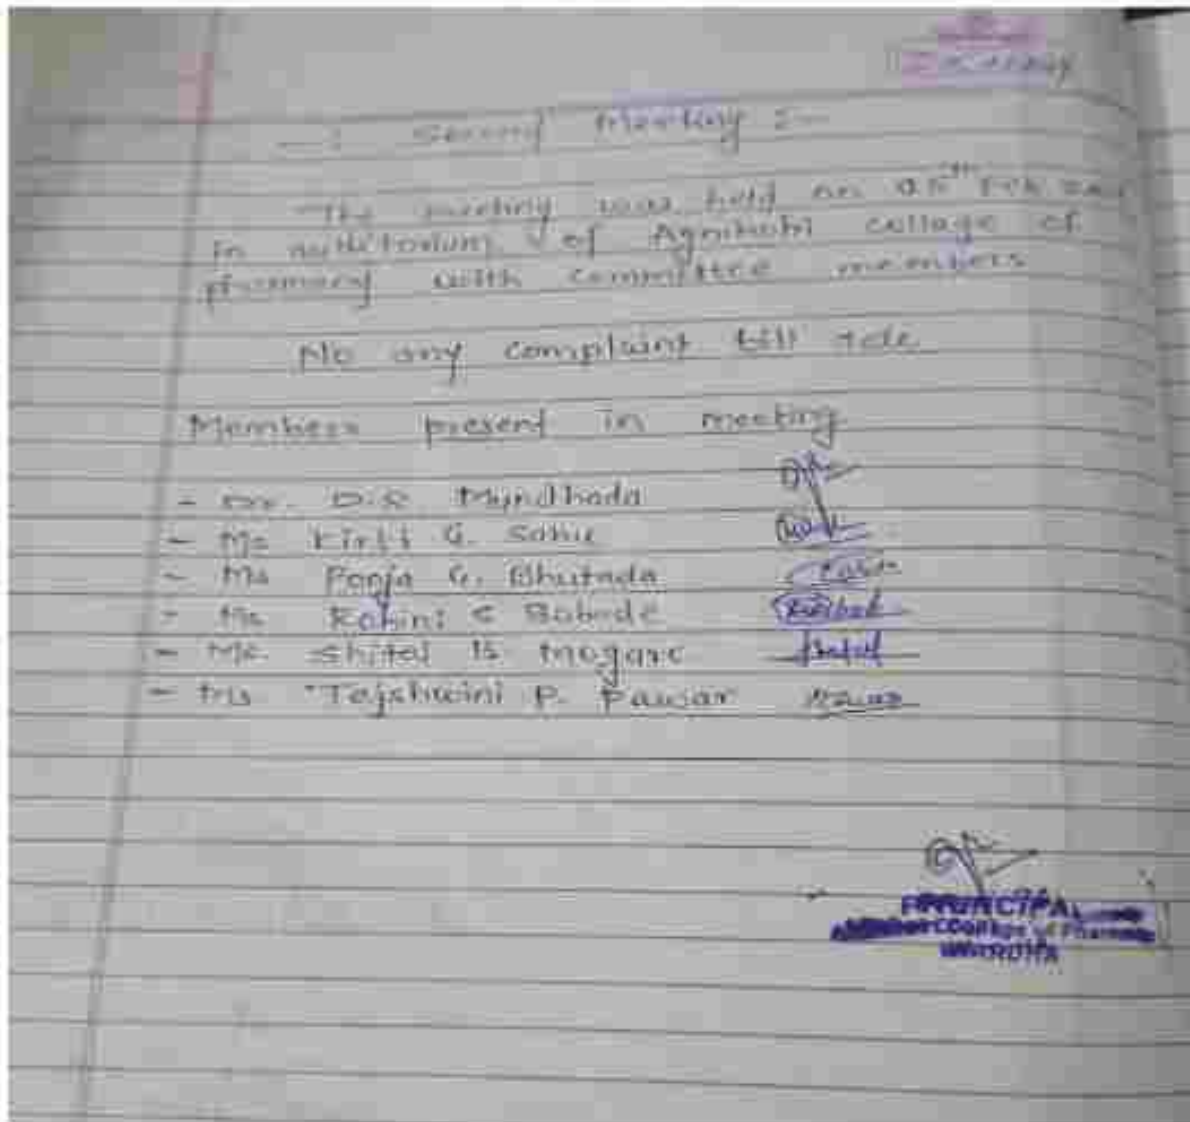 Second Meeting :-
The meeting was held on 05th Feb
in auditorium of Agnihotri collage of
pharmacy with committee members
No any complaint till
Members present in meeting
- Dr. D.R. Mundhada
- Ms Kirti G. Sahu
- Ms Pooja G. Bhutada
- Ms Rohini C Bobade
- Ms. Shital B. Mogare
- Ms Tejshwini P. Pawar
PRINCIPAL
College of Pharmacy
WARDHA